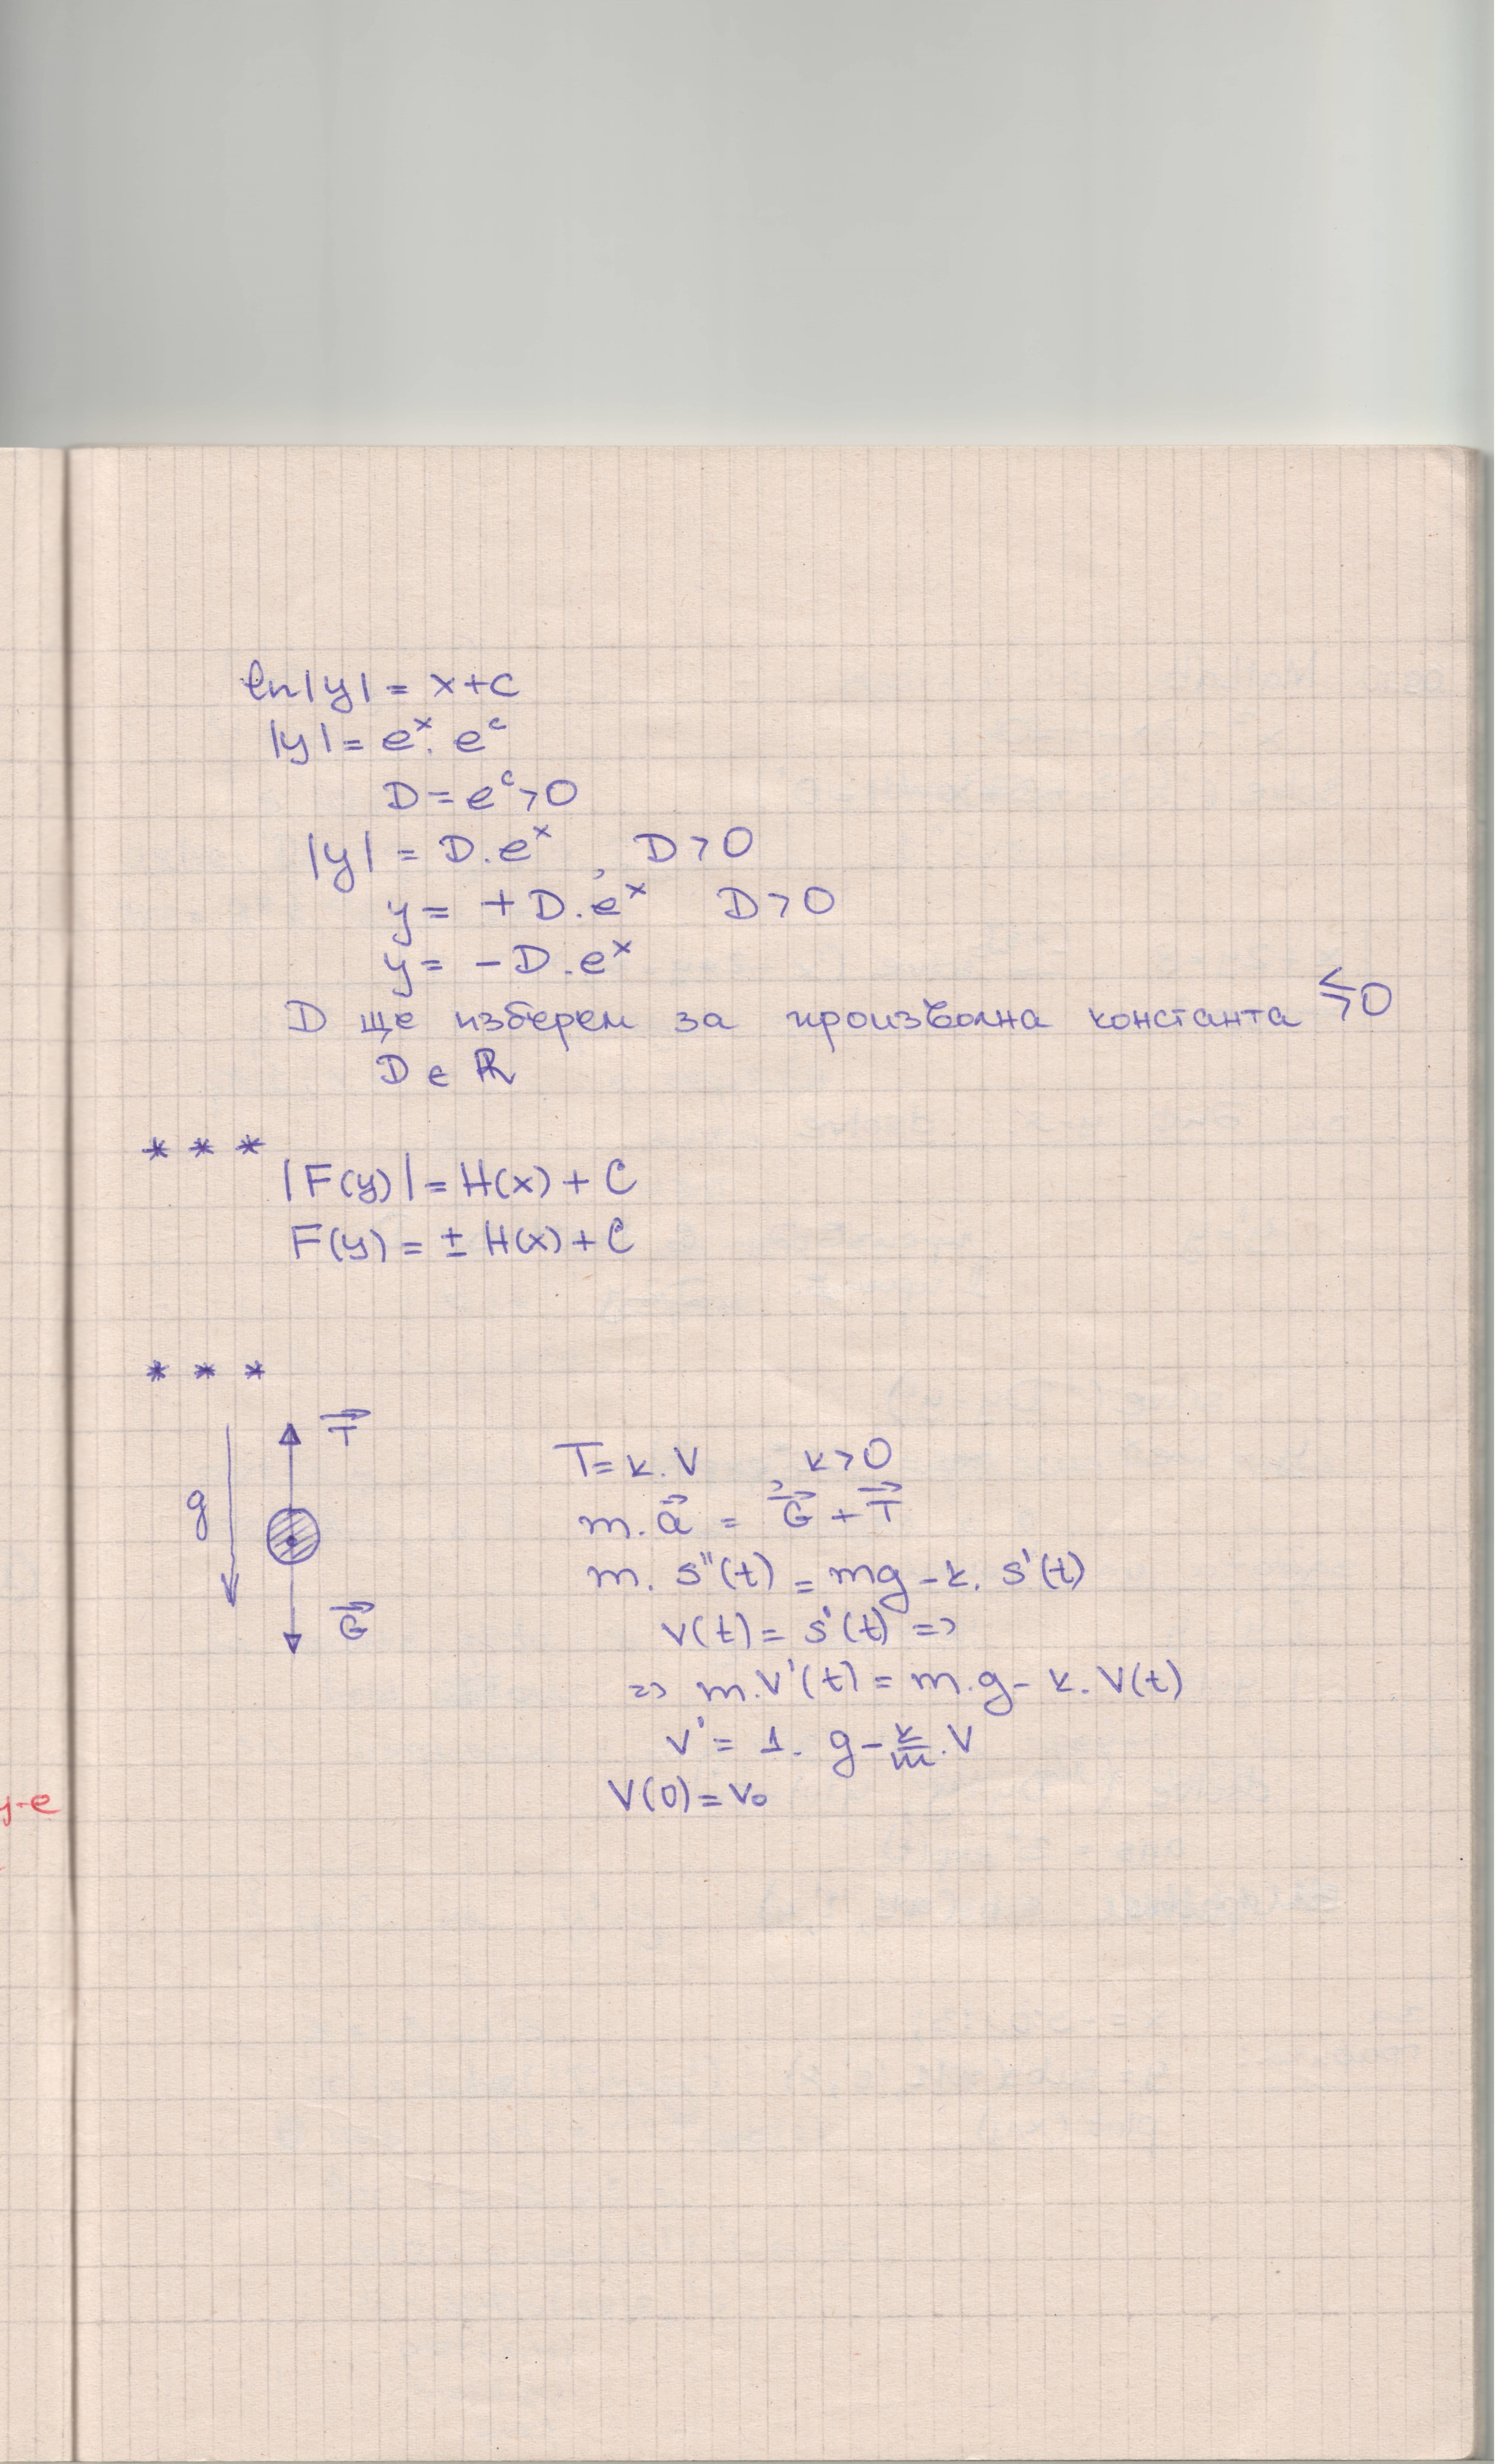 ln|y| = x+c
|y| = eˣ. eᶜ
D = eᶜ>0
|y| = D.eˣ , D>0
y = +D.eˣ D>0
y = -D.eˣ
D ще изберем за произволна константа ⪋0
D ∈ ℝ
* * *
|F(y)| = H(x) + C
F(y) = ± H(x) + C
* * *
T⃗
g
G⃗
T = k.V , k>0
m.a⃗ = G⃗ + T⃗
m. s''(t) = mg - k. s'(t)
v(t) = s'(t) =>
=> m.v'(t) = m.g - k.V(t)
v' = 1. g - k/m .V
V(0) = v₀
y-e